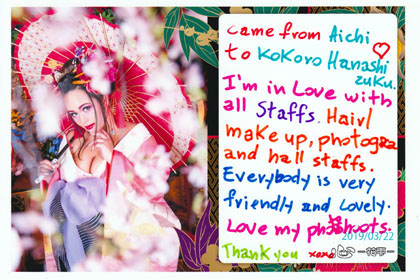 Came from Aichi
to KoKoro Hanashi
zuKu.
I'm in Love with
all Staffs. Hair/
make up, photogra
and hall staffs.
Everybody is very
friendly and Lovely.
Love my photshoots.
2019/03/22
Thank you xoxo